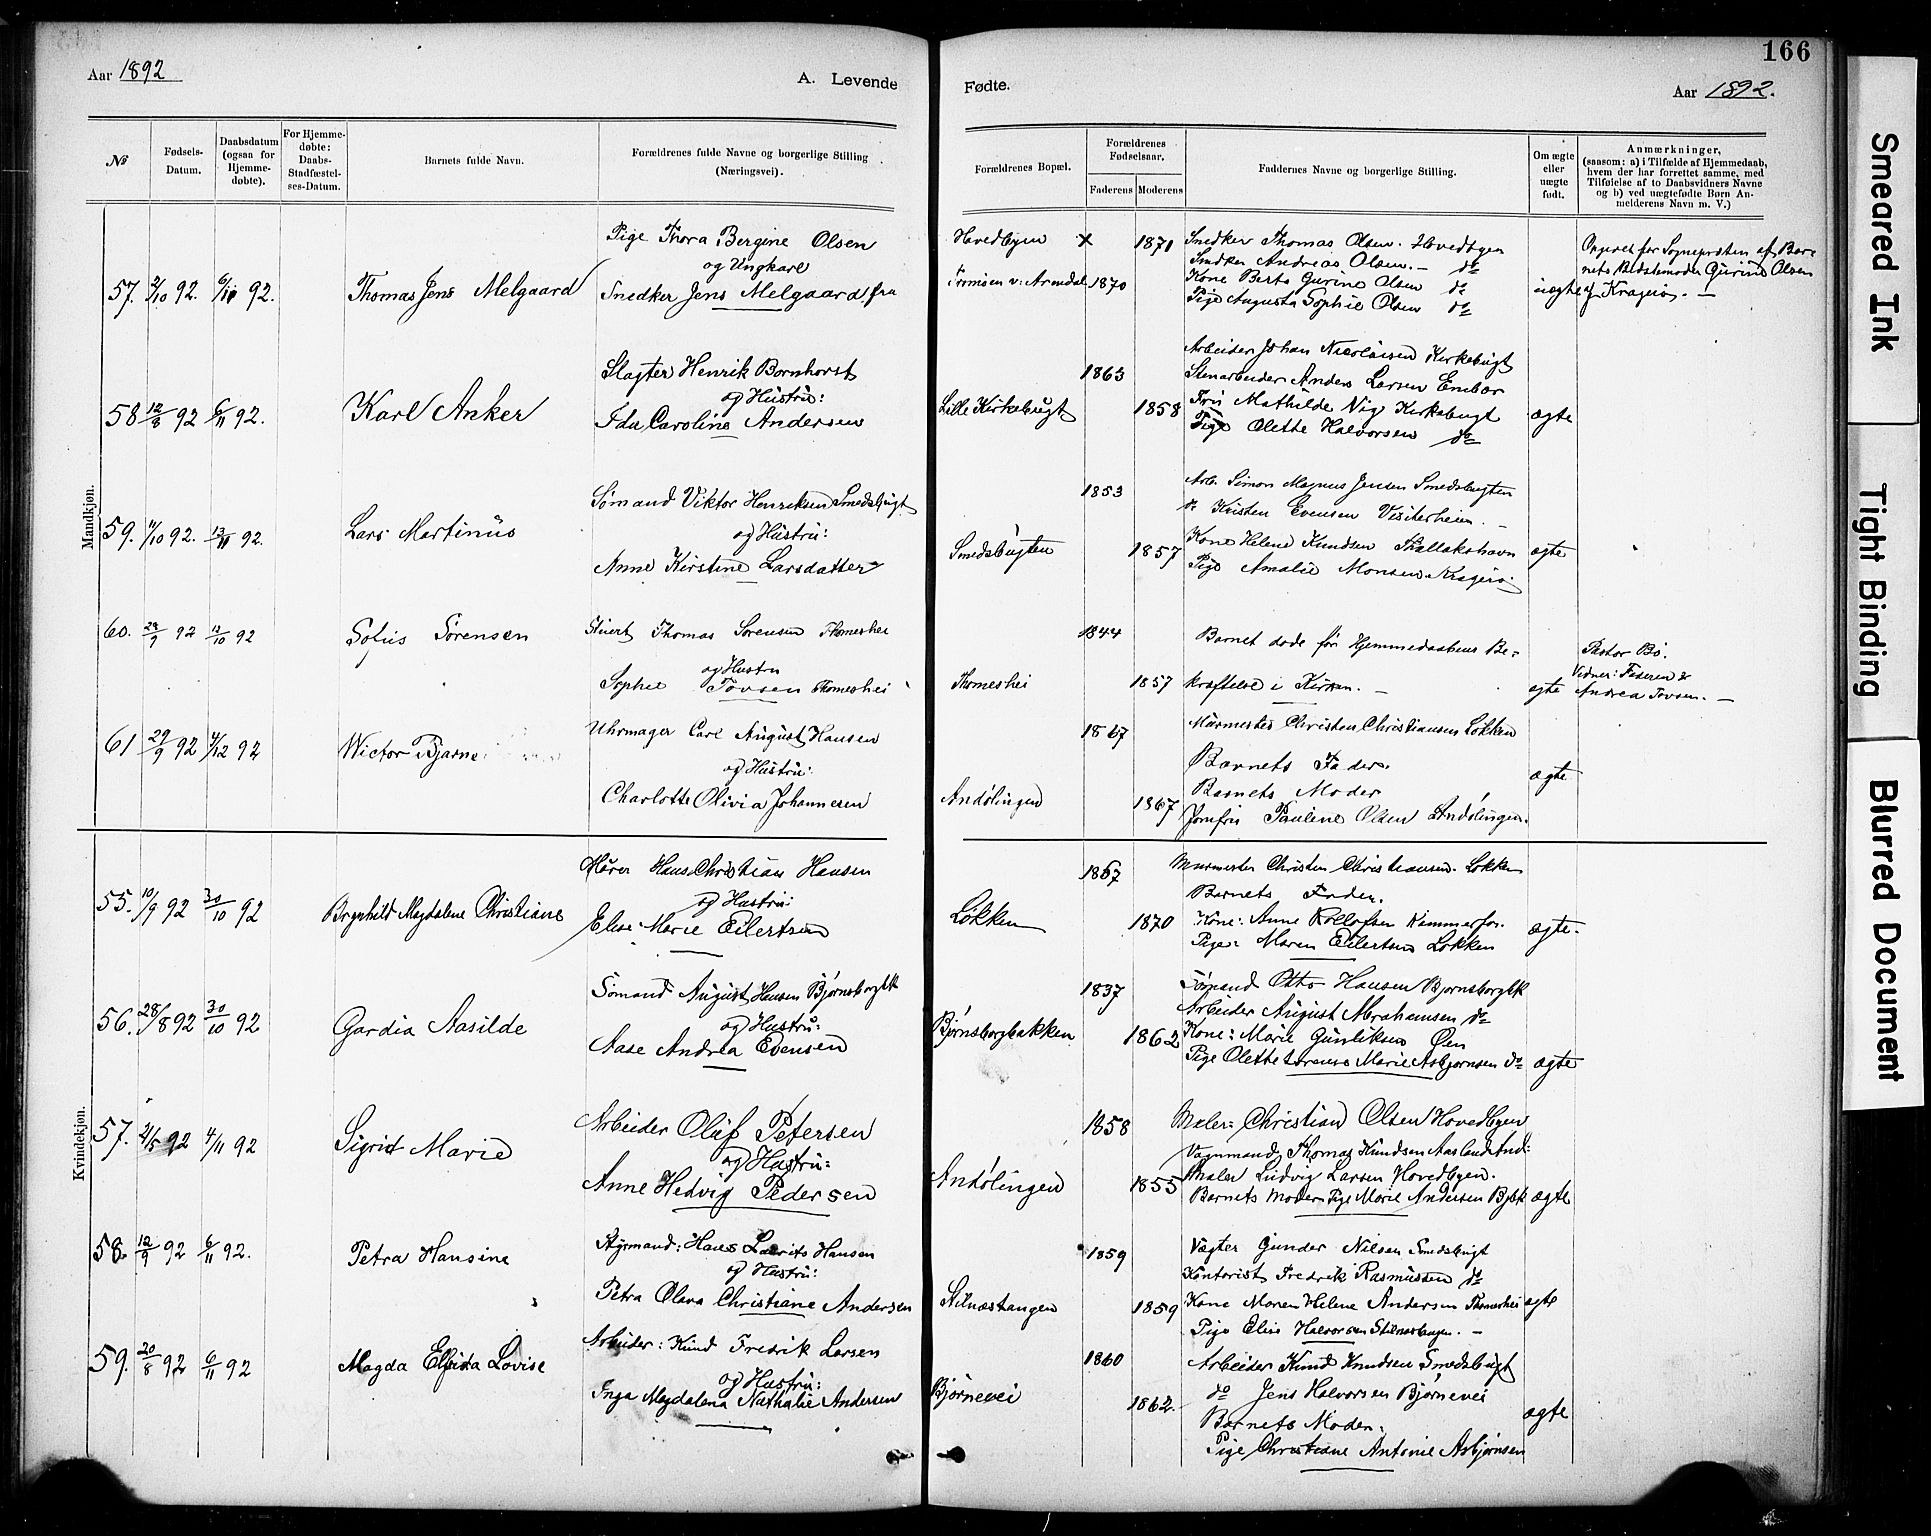 166
Aar 1892
A. Levende
Fødte.
Aar 1892.
№
Fødsels-Datum.
Daabsdatum (ogsaa for Hjemme-døbte).
For Hjemme-døbte: Daabs-Stadfæstel-ses-Datum.
Barnets fulde Navn.
Forældrenes fulde Navne og borgerlige Stilling (Næringsvei).
Forældrenes Bopæl.
Forældrenes Fødselsaar.
Faderens Moderens
Faddernes Navne og borgerlige Stilling.
Om ægte eller uægte født.
Anmærkninger,
(saasom: a) i Tilfælde af Hjemmedaab, hvem der har forrettet samme, med Tilføielse af to Daabsvidners Navne og b) ved uægtefødte Børn Anmelderens Navn m. V.)
Mandkjøn.
57. 2/10 92. 6/11 92.
Thomas Jens Melgaard
Pige Thora Bergine Olsen
og Ungkarl
Snedker Jens Melgaard, fra
Hovedbyen x 1871
v: Arendal 1870
Snedker Thomas Olsen. Hovedbyen
Snedker Andreas Olsen. — do
Kone Berte Gurine Olsen do
Pige Augusta Sophie Olsen do
uægte
Opgivet for Sognepræsten af Bar-
nets Bedstemoder Gurine Olsen
af Kragerø. —
58 12/8 92 6/11 92.
Karl Anker
Slagter Henrik Bornhorst
og Hustru:
Ida Caroline Andersen
Lille Kirkebugt
1863
1858
Arbeider Johan Nicolaisen Kirkebugt
Stenarbeider Anders Larsen
Mathilde Kirkebugt
Pige Olette Halvorsen do
ægte
59. 11/10 92. 13/11 92.
Lars Martinus
Sømand Viktor Henriksen Smedsbugt
og Hustru:
Anne Kirstine Larsdatter
Smedsbugten
1853
1857
Arb. Simon Magnus Jensen Smedsbugten
do Kristen Evensen
Kone Helene Knudsen
Pige Amalie Monsen Kragerø.
ægte
60. 9 92 10 92
Sofus Sørensen
Stuert Thomas Sørensen Thomeshei
og Hustru
Sophie Tovsen Thomeshei
Thomeshei
1844
1857
Barnet døde før Hjemmedaabens Be-
kræftelse i Kirken. —
ægte
Pastor Bø.
Vidner: Faderen &
Andrea Tovsen. —
61 29/9 92 4/12 92
Wictor Bjarne
Uhrmager Carl August Hansen
og Hustru:
Charlotte Olivia Johannesen
Andølingen
1867
1867
Murmester Christen Christiansen Løkken
Barnets Fader.
Barnets Moder
Jomfru Pauline Olsen Andølingen.
ægte
Kvindekjøn.
55. 10/9 92 30/10 92
Brynhild Magdalene Christiane
Murer Hans Christian Hansen
og Hustru:
Elise Marie Eilertsen
Løkken
1867
1870
Murmester Christen Christiansen. Løkken
Barnets Fader.
Kone: Anne Rolloffsen Kammerfos.
Pige: Maren Eilertsen Løkken
ægte.
56. 28/8 92 30/10 92
Gardia Aasilde
Sømand August Hansen Bjørnsborgbk
og Hustru:
Aase Andrea Evensen
Bjørnsborgbakken
1837
1862
Sømand Otto Hansen Bjørnsborgbk
Arbeider August Abrahamsen do
Kone: Marie Gunliksen Øen
Pige Olette Lorense Marie Asbjørnsen do
ægte
57. 2/5 92 4/11 92
Sigrid Marie
Arbeider Oluf Petersen
og Hustru:
Anne Hedvig Pedersen
Andølingen
1858
1855
Maler Christian Olsen Hovedbyen
Vognmand Thomas Knudsen Aasland And:
Maler Ludvig Larsen Hovedbyen.
Barnets moder Pige Marie Andersen
ægte
58. 12/9 92 6/11 92.
Petra Hansine
Styrmand: Hans Laurits Hansen
og Hustru:
Petra Olava Christiane Andersen
Stilnæstangen
1859
1859
Vægter Gunder Nilsen Smedsbugt
Kontorist Fredrik Rasmussen do
Kone Maren Helene Andersen Thomeshei
Pige Elise Halvorsen Stilnæstangen. —
ægte
59. 20/8 92 6/11 92
Magda Elfrida Lovise
Arbeider: Knud Fredrik Larsen
og Hustru:
Inga Magdalena Nathalie Andersen
Bjørnevei
1860
1862.
Arbeider Knud Knudsen Smedsbugt
do Jens Halvorsen Bjørnevei
Barnets Moder.
Pige Christiane Antonie Asbjørnsen
ægte
Smeared Ink
Tight Binding
Blurred Document